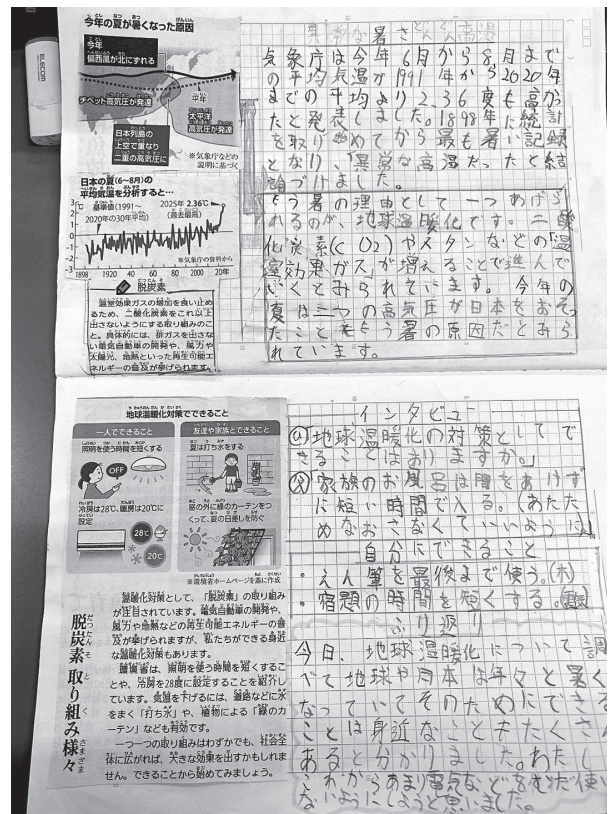 ELECOM
今年の夏が暑くなった原因
今年
偏西風が北にずれる
チベット高気圧が発達
平年
太平洋
高気圧が発達
日本列島の
上空で重なり
二重の高気圧に
※気象庁などの
説明に基づく
日本の夏(6〜8月)の
平均気温を分析すると…
基準値(1991〜
2020年の30年平均)
2025年 2.36℃
(過去最高)
※気象庁の資料から
1898 1920 40 60 80 2000 20年
脱炭素
温室効果ガスの増加を食い止め
るため、二酸化炭素をこれ以上
出さないようにする取り組みのこ
と。具体的には、排ガスを出さな
い電気自動車の開発や、風力や
太陽光、地熱といった再生可能エ
ネルギーの普及が挙げられます。
気象庁は今年6月から8月まで
の平均気温が1991年から2020年
までの平均より2.36度も高か
ったと発表しました。1898年に統計
を取り始めてから最も暑い記録
となり、「異常な高温だった」と結
論づけました。
もう暑の理由として一つあげら
れるのが、地球温暖化です。二酸
化炭素(CO2)やメタンなどの「温
室効果ガス」が増えることで進んで
いくとみられています。今年の
夏は二つの高気圧が日本をおそっ
たことももう暑の原因だとみら
れています。
地球温暖化対策でできること
一人でできること
照明を使う時間を短くする
OFF
冷房は28℃、暖房は20℃に
設定
28℃
20℃
友達や家族とできること
夏は打ち水をする
窓の外に緑のカーテンをつ
くって、夏の日差しを防ぐ
※環境省ホームページを基に作成
脱炭素 取り組み様々
温暖化対策として、「脱炭素」の取り組み
が注目されています。電気自動車の開発や、
風力や地熱などの再生可能エネルギーの普
及が挙げられますが、私たちができる身近
な温暖化対策もあります。
環境省は、照明を使う時間を短くするこ
とや、冷房を28度に設定することを紹介し
ています。気温を下げるには、道路などに水
をまく「打ち水」や、植物による「緑のカ
ーテン」なども有効です。
一つ一つの取り組みはわずかでも、社会全
体に広がれば、大きな効果を出すかもしれま
せん。できることから始めてみましょう。
インタビュー
「地球温暖化の対策としてで
きることはありますか。」
家族のお風呂は間をあけず
に短い時間で入る。(あたた
めなおさなくていいように)
自分にできること
・えん筆を最後まで使う。(木)
・宿題の時間を短くする。
ふり返り
今日、地球温暖化について調
べて地球や日本は年々と暑く
なっていてそのためにできる
ことは身近なこともたくさん
あると分かりました。わたし
これからあまり電気などをむだ使い
ないようにしようと思いました。